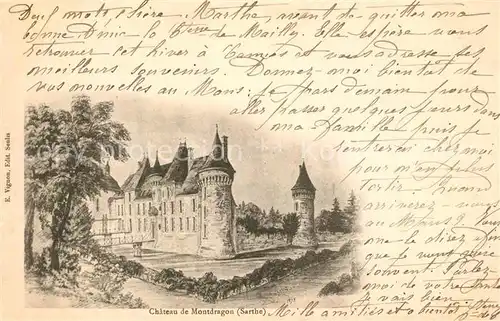 Deux mots, chère Marthe, avant de quitter ma
bonne Amie la Ctesse de Mailly. Elle espère vous
retrouver cet hiver à Cannes et vous adresse ses
meilleurs souvenirs. Donnez-moi bientôt de
vos nouvelles au Mans: je pars demain pour
aller passer quelques jours dans
ma famille puis je
rentrerai chez moi
pour n'en plus
sortir. Quand
arriverez-vous
au Mans? Vous
me le direz pour
que je vous
souvent. Parlez
moi de votre
je vais bien
Mille amitiés et à bientôt
E. Vignon, Edit. Senlis
Château de Montdragon (Sarthe)